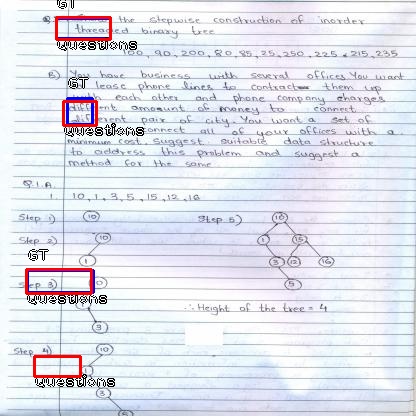 GT
Q. Show the stepwise construction of inorder
Questions
threaded binary tree
100, 90, 200, 80, 85, 25, 250, 225, 215, 235
B) You have business with several offices. You want
GT
lease phone lines to contract them up
with each other and phone company charges
different amount of money to connect
different pair of city. You want a set of
Questions
connect all of your offices with a
minimum cost. Suggest suitable data structure
to address this problem and suggest a
method for the same.
Q.1.A.
1. 10, 1, 3, 5, 15, 12, 16
Step 1) 10
Step 5) 10
1 15
3 12 16
5
Step 2) 10
1
GT
Step 3)
Questions
3
∴ Height of the tree = 4
GT
Step 4) 10
1
Questions
3
5